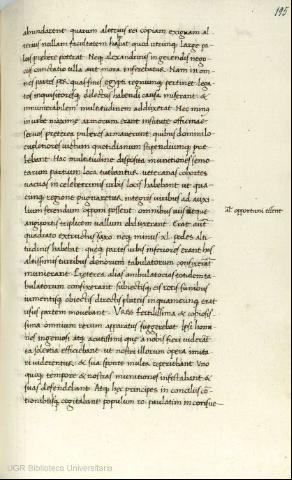 195
abundarent quarum alterius rei copiam exiguam al
terius nullam facultatem habat quod utrumq; large pa
lus prebere poterat. Neq; alexandrinis in gerendis nego
ciis cunctatio ulla aut mora inferebatur. Nam in om
nes partes per quas fines egypti regnumq; pertinet lega
tos inquisitoresq; delectus habendi causa miserant &
innumerabilem multitudinem adduxerat. Nec mino
in urbe maxime armorum erant institute officinae
seruos preterea puberes armauerunt quibus domini locu
pletiores uictum quotidianum stipendiumq; pre
bebant. Hac multitudine disposita munitiones semo
tarum partium loca tuebantur. ueteranas cohortes
uacuas in celeberrimis urbis locis habebant ut qua
cumq; regione pugnaretur integris uiribus ad auxi
lium ferendum oppositi essent. omnibus uiis atque
angiportis triplicem uallum duxerant. Erat aut
quadrato extructus saxo neq; minus .xl. pedes alti
tudinis habebat. queq; partes urbis inferiores erant has
altissimis turribus denorum tabulatorum
munierant. Preterea alias ambulatorias totidem ta
bulatorum confixerant subiectisq; eis rotis funibus
iumentisq; obiectis directis plateis in quamcumq; erat
usus partem mouebant. Urbs fertilissima & copiosis
sima omnium rerum apparatus suggerebat. Ipsi homi
nes ingeniosi atq; acutissimi que a nobis fieri uiderat
ea solertia efficiebant ut nostri illorum opera imita
ti uiderentur. & sua sponte multa reperiebant. Uno
quoq; tempore & nostras munitiones infestabant &
suas defendebant. Atq; hec principes in conciliis con
tionibusq; populum ro. paulatim in consue
al' opportuni essent
UGR Biblioteca Universitaria